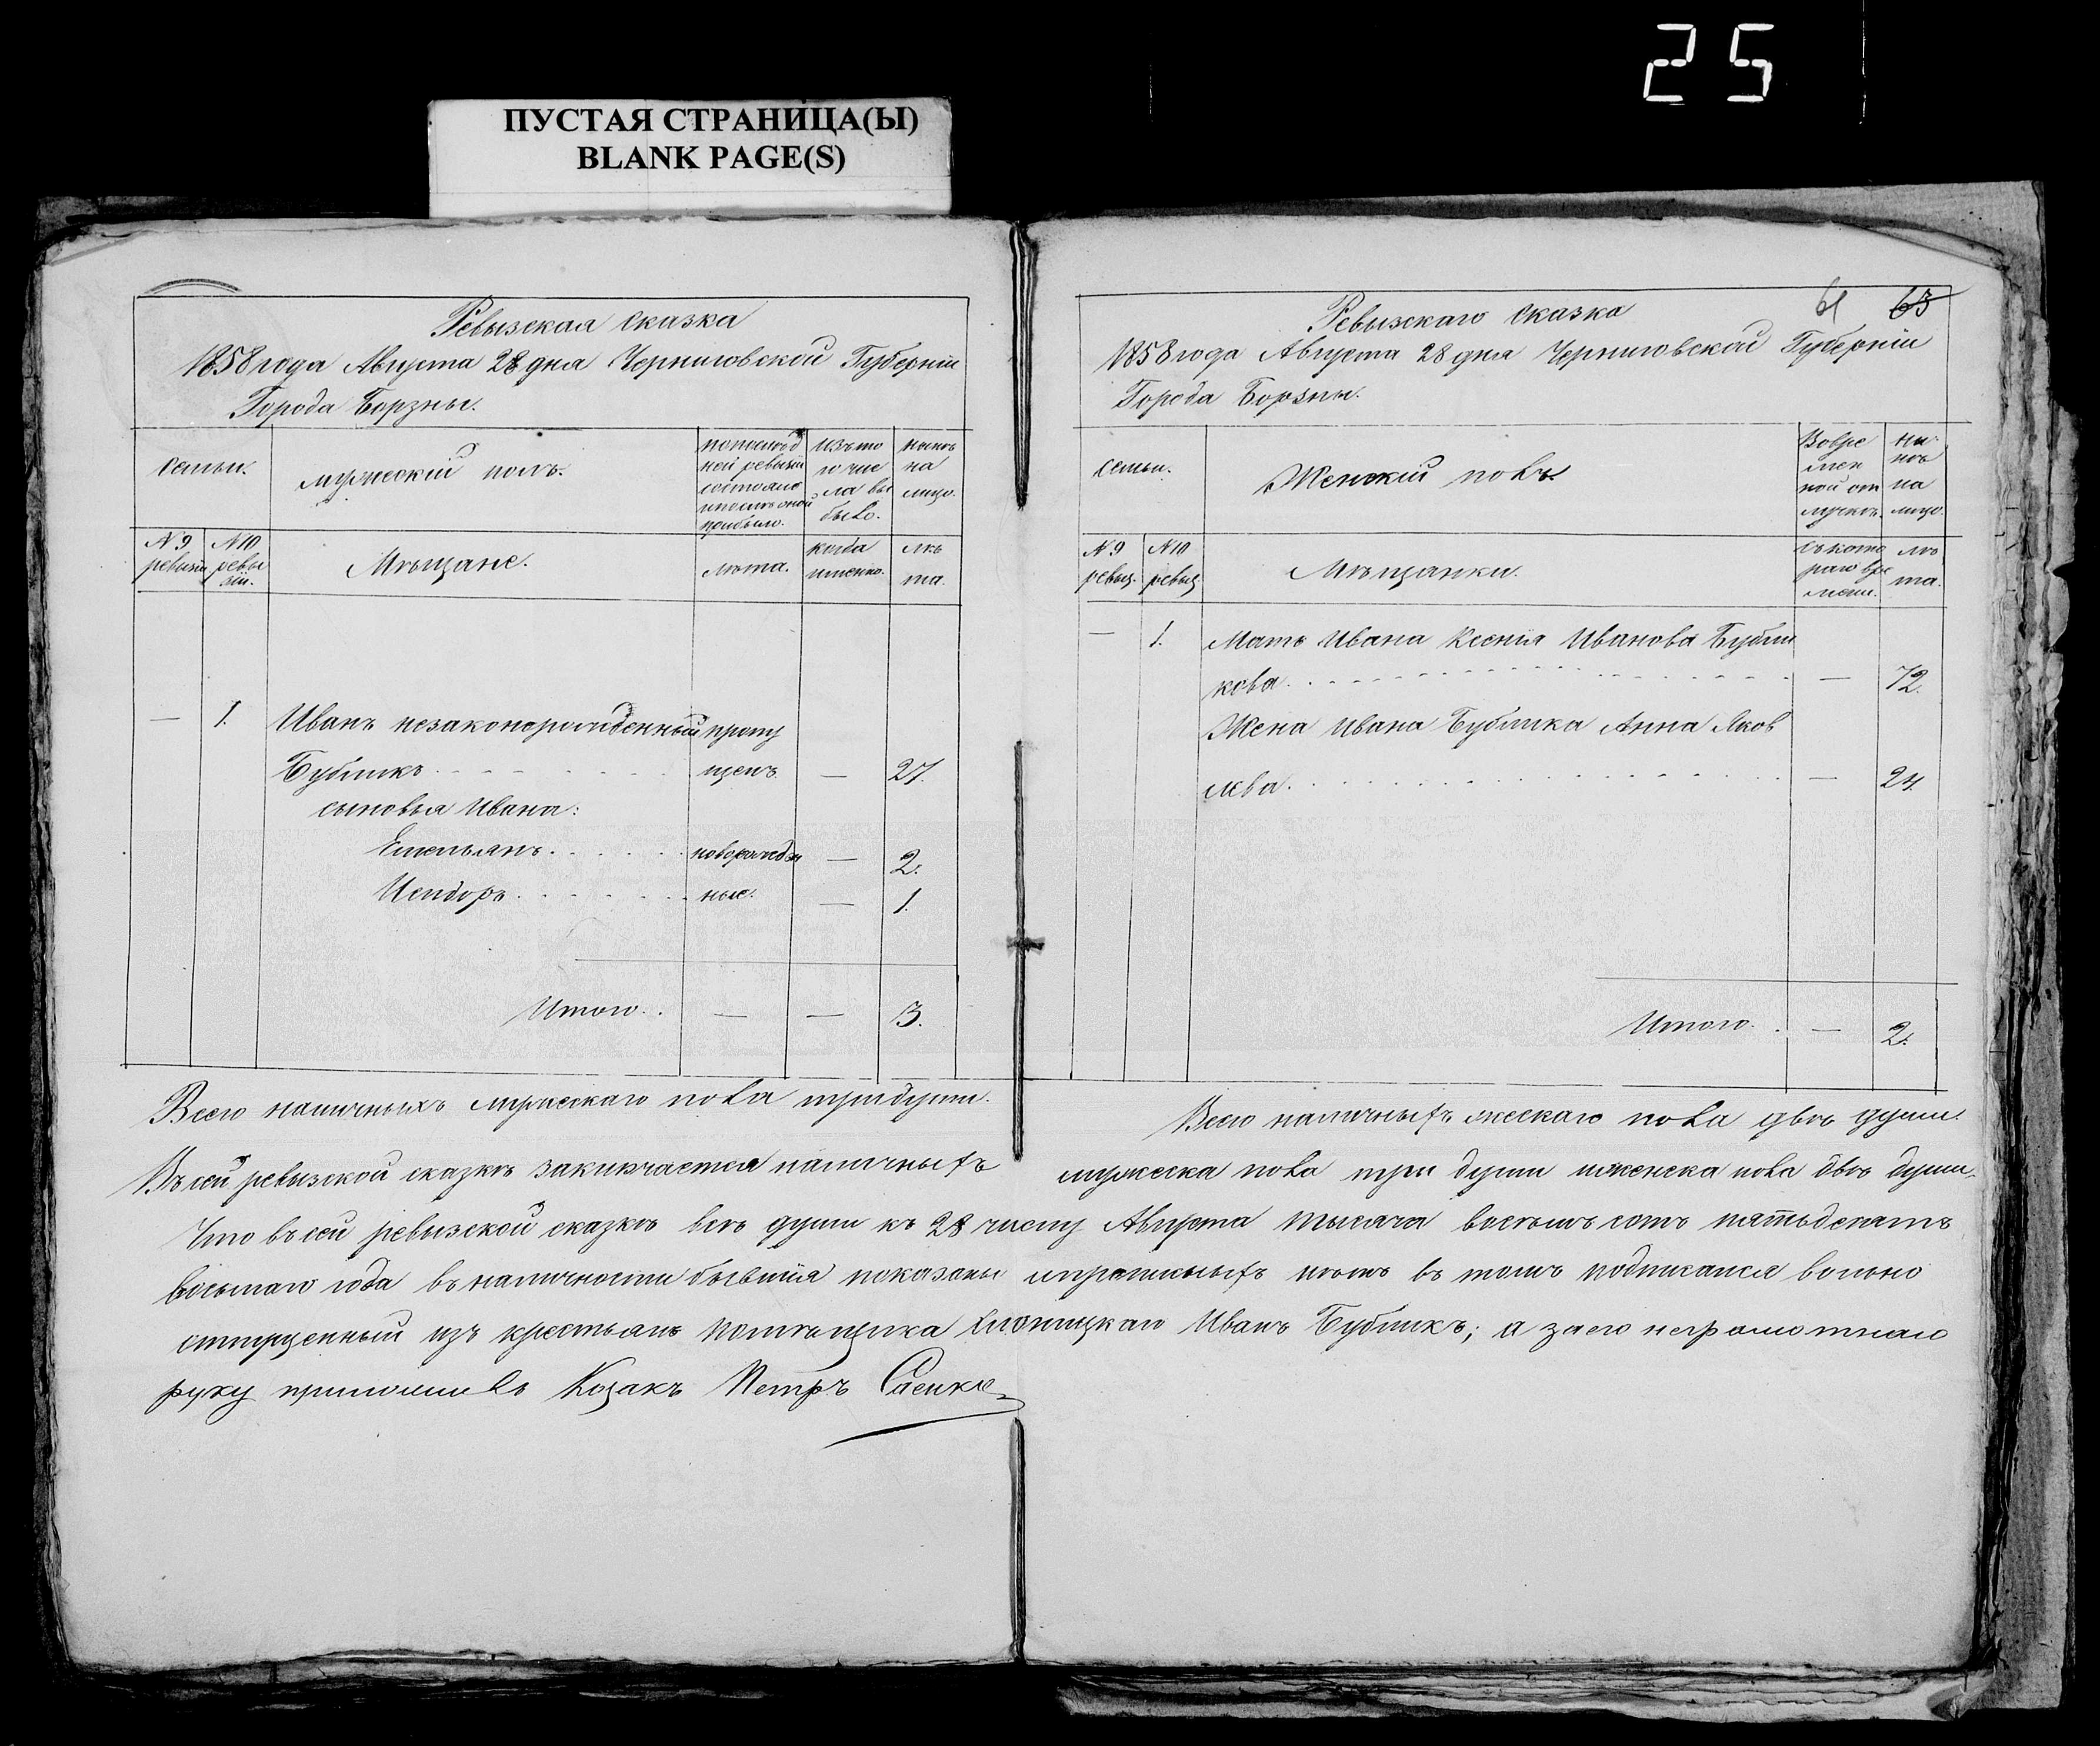 25
ПУСТАЯ СТРАНИЦА(Ы)
BLANK PAGE(S)
Ревызская сказка
1858 года Августа 28 дня Черниговской Губерніи
Города Борзны.
семьи.
мужескій полъ.
попослѣд
ней ревызіи
состояло
ипослѣ оной
прибыло.
Изъ то
го чис
ла вы
было.
нынѣ
на
лицо.
№ 9
ревызіи
№ 10
ревы
зіи.
Мѣщане.
лѣта.
когда
именно.
лѣ
та.
—
1.
Иванъ незаконорожденный
пропу
Бубликъ
щенъ.
—
27.
сыновья Ивана:
Емельянъ.
новорожден
—
2.
Исидоръ.
ные.
—
1.
Итого.
—
—
3.
Всего наличныхъ мужескаго пола тридуши.
61 63
Ревызскаго сказка
1858 года Августа 28 дня Черниговской Губерніи
Города Борзны.
семьи.
Женскій полъ.
Вовре
мен
ной от
лучкѣ.
ны
нѣ
на
лицо.
№ 9
ревыз.
№ 10
ревыз
Мѣщанки.
съ кото
раго вре
мени.
лѣ
та.
—
1.
Мать Ивана Ксенія Иванова Бубли
кова.
—
72.
Жена Ивана Бублика Анна Яков
лева.
—
24.
Итого.
—
2.
Всего наличныхъ жескаго пола двѣ души.
Въ сей ревызской сказкѣ заключается наличныхъ мужеска пола три души иженска пола двѣ души.
Что въ сей ревызской сказкѣ всѣ души къ 28 числу Августа тысяча восемъ сотъ пятьдесятъ
восьмаго года въ наличности бывшія показаны и нѣтъ въ томъ подписался вольно
отпущенный изъ крестьянъ помѣщика Иванъ Бубликъ; а заего неграмотнаго
руку приложилъ Козакъ Петръ Саенко